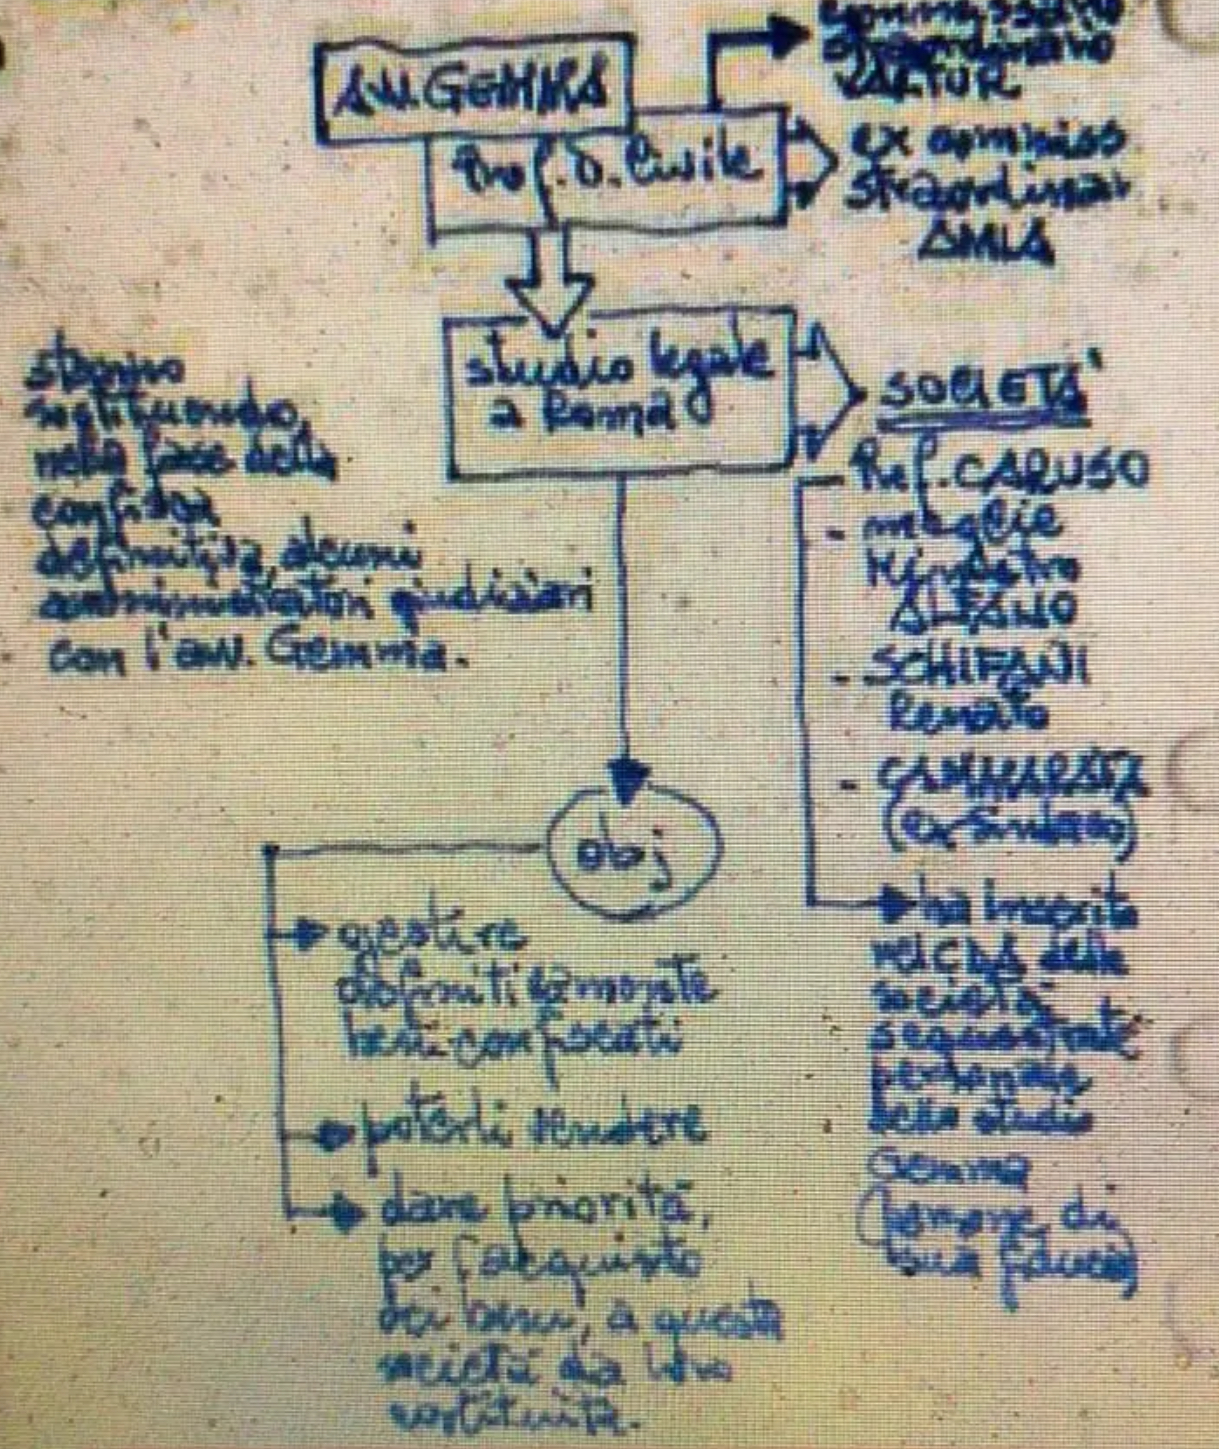 commissario
straordinario
VALTUR
AVV. GEMMA
Prof. D. Civile
ex commiss.
straordinar
AMIA
studio legale
a Roma
SOCIETÀ
Pref. CARUSO
- moglie
Ministro
ALFANO
- SCHIFANI
Renato
- CAMMARATA
(ex Sindaco)
ha inserito
nei CDA delle
società
sequestrate
personale
dello studio
Gemma
(persone di
sua fiducia)
stanno
sostituendo,
nella fase della
confisca
definitiva, alcuni
amministratori giudiziari
con l'avv. Gemma.
obj
gestire
definitivamente
beni confiscati
poterli vendere
dare priorità,
per l'acquisto
dei beni, a questa
società da loro
costituita.